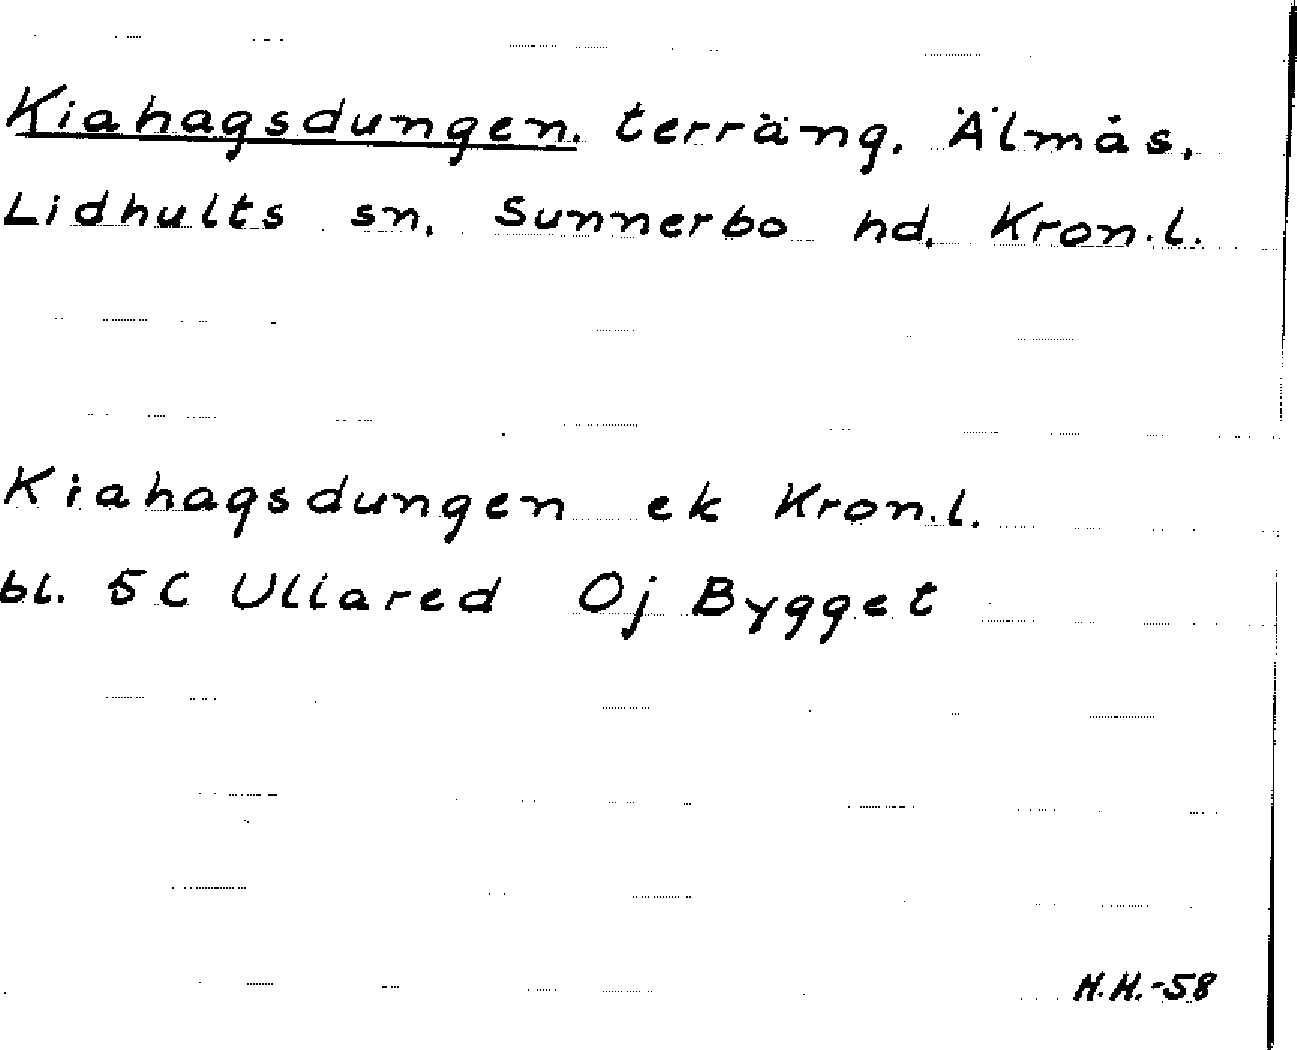 Kiahagsdungen. terräng. Älmås.
Lidhults sn. Sunnerbo hd. Kron.l.
Kiahagsdungen ek Kron.l.
bl. 5C Ullared Oj Bygget
H.H.-58